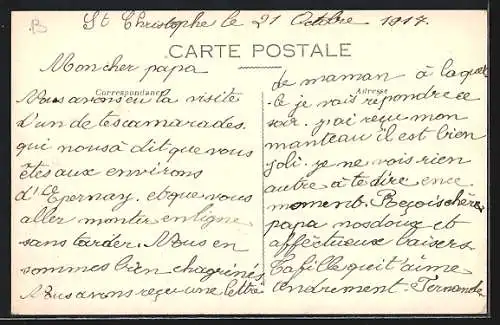 St Christophe le 21 Octobre 1917.
CARTE POSTALE
Mon cher papa
Correspondance
Nous avons eu la visite
d'un de tes camarades.
qui nous à dit que vous
êtes aux environs
d'Epernay. et que vous
aller monter en ligne
sans tarder. Nous en
sommes bien chagrinés
Nous avons reçu une lettre
Adresse
de maman à laquel
le je vais répondre ce
soir. j'ai reçu mon
manteau il est bien
joli. je ne vois rien
autre à te dire en ce
moment. Reçois chere
papa nos doux et
affectueux baisers
Ta fille qui t'aime
tendrement. Fernande